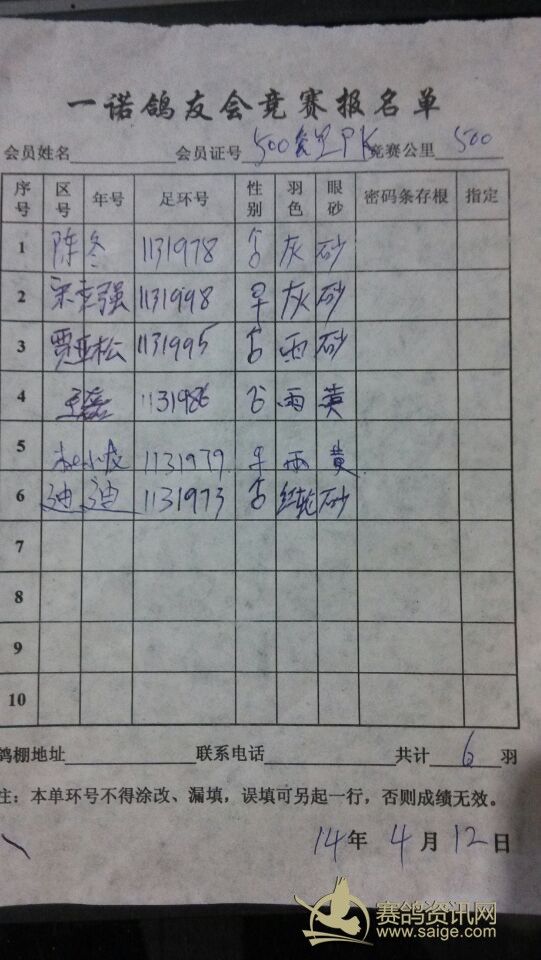 一诺鸽友会竞赛报名单
会员姓名 会员证号 500公里PK 竞赛公里 500
序号 区号 年号 足环号 性别 羽色 眼砂 密码条存根 指定
1 陈冬 1131978 灰 砂
2 强 1131998 灰 砂
3 贾亚松 1131995 雨 砂
4 王磊 1131986 雨 黄
5 1131979 雨 黄
6 迪迪 1131973 红轮 砂
7
8
9
10
鸽棚地址 联系电话 共计 6 羽
注：本单环号不得涂改、漏填，误填可另起一行，否则成绩无效。
14年 4月 12日
赛鸽资讯网
www.saige.com